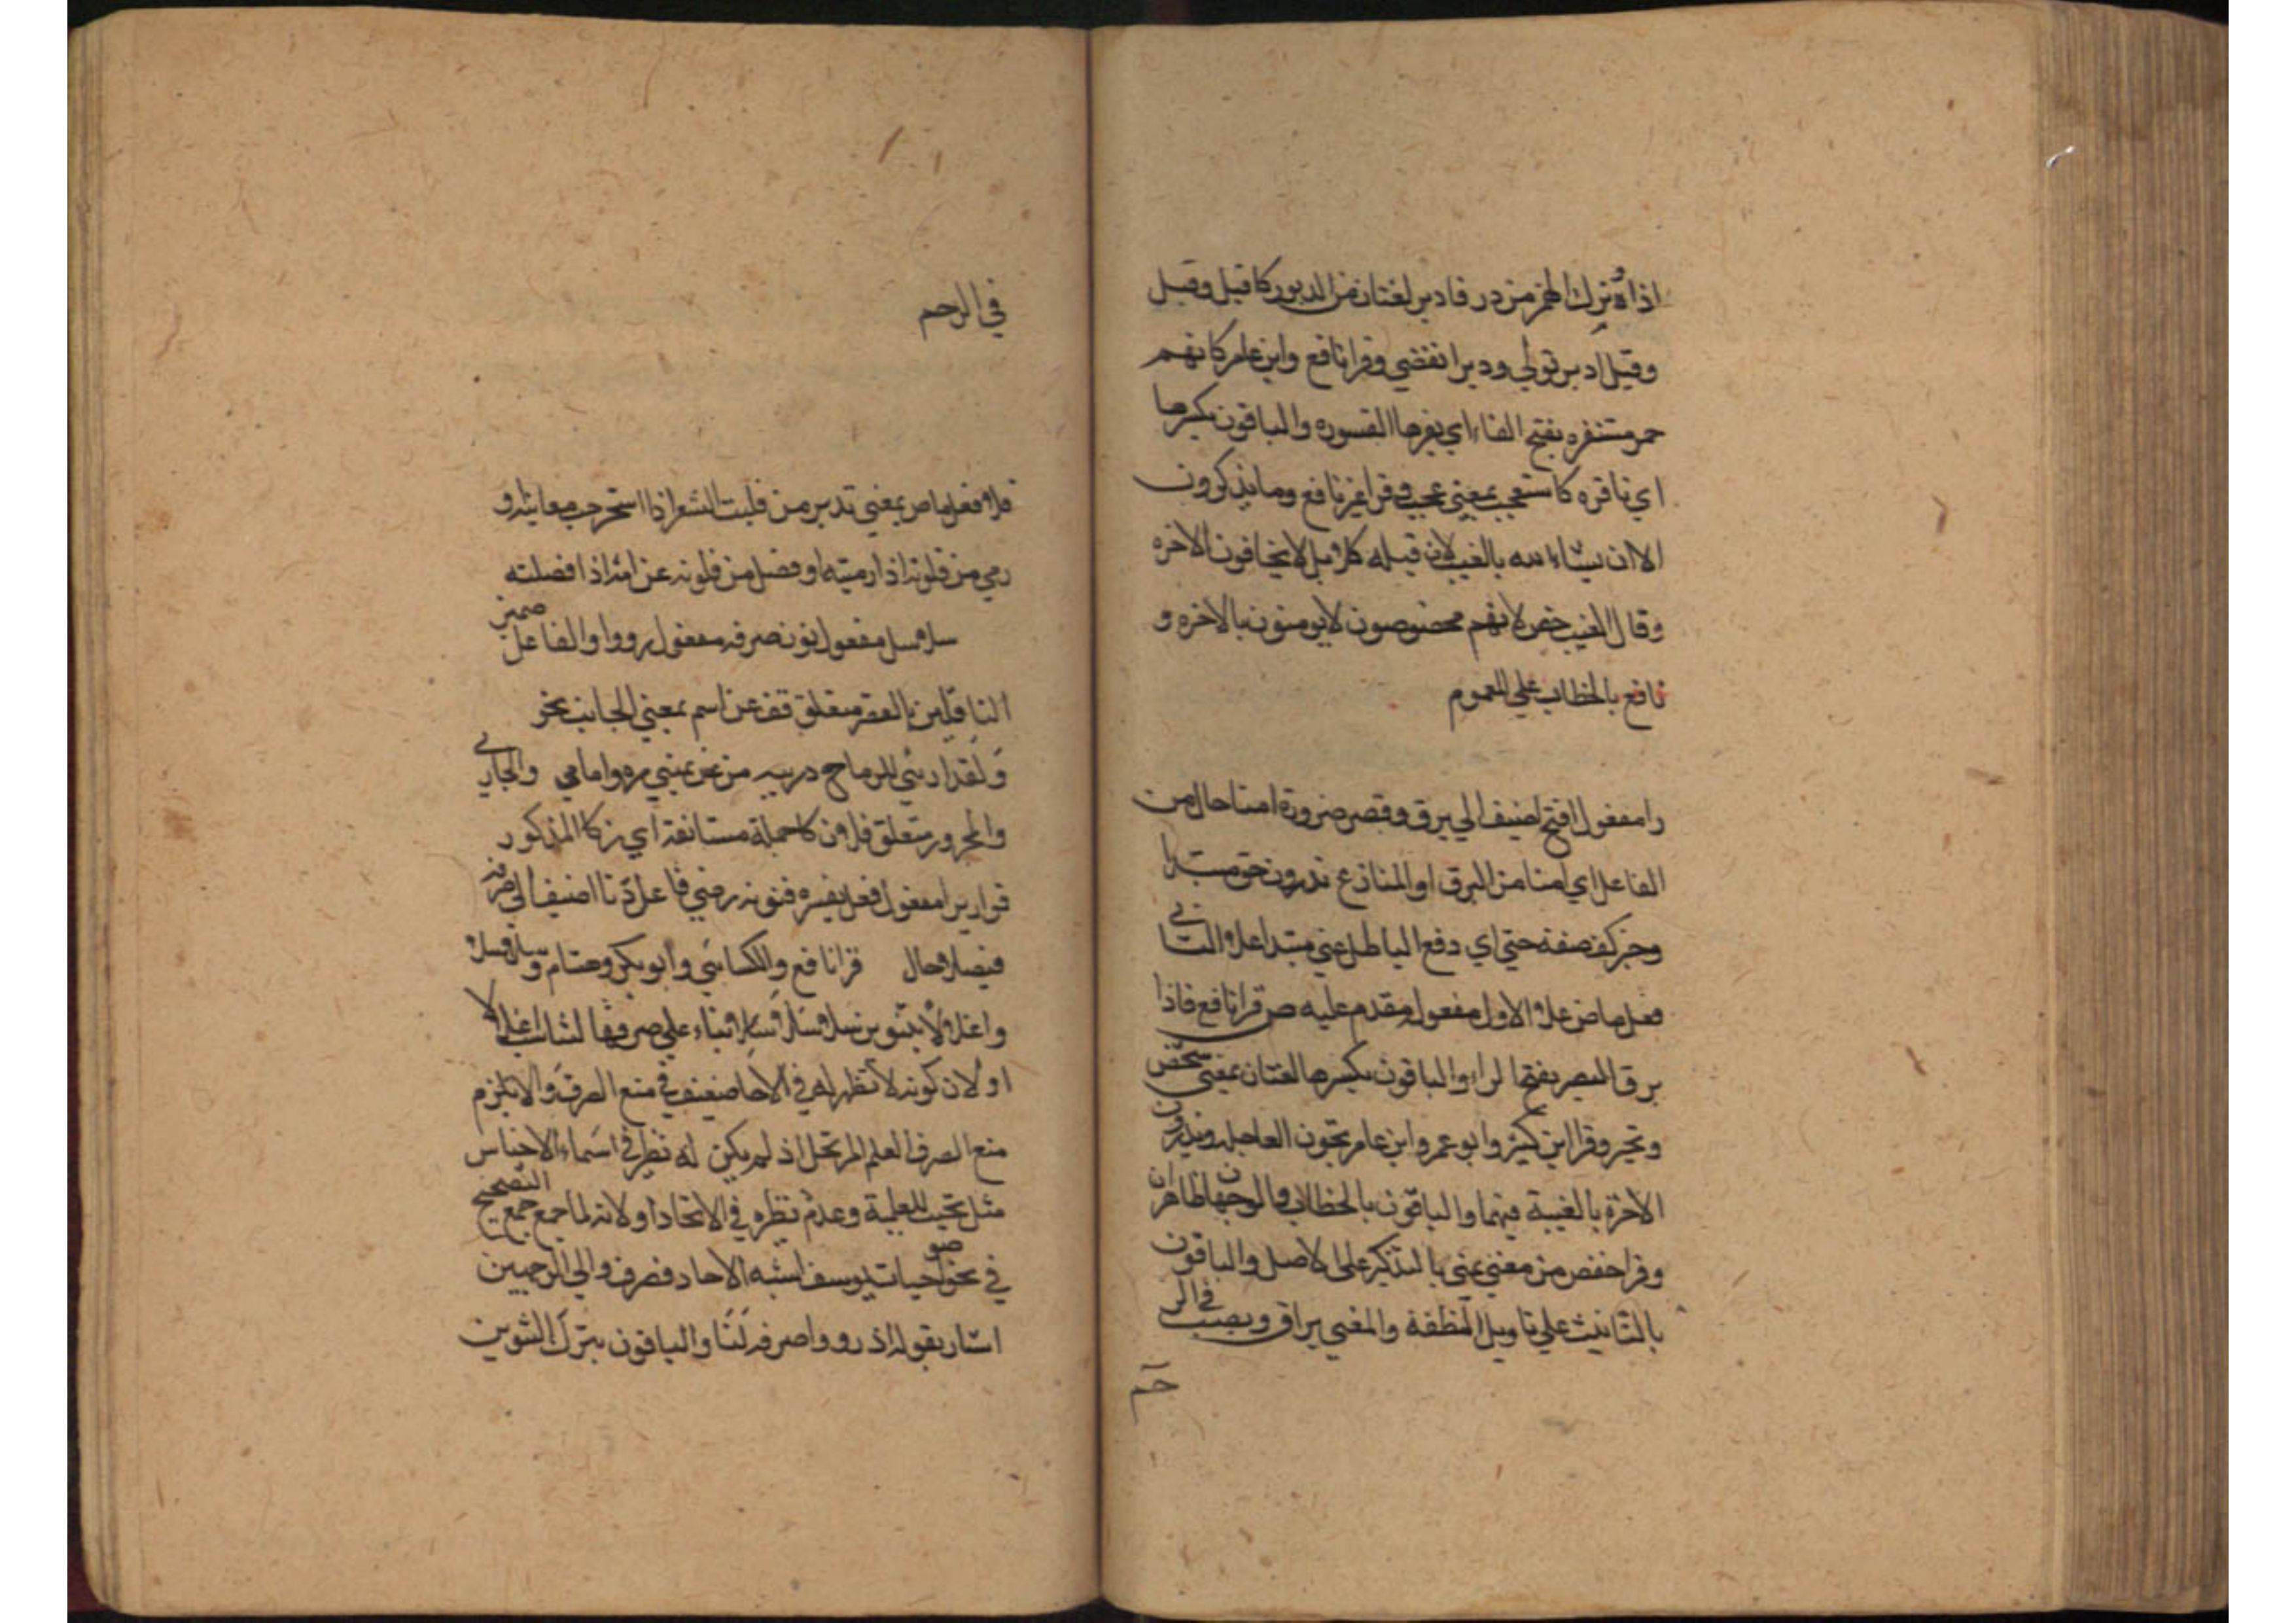 اذا ترك الهمز من در فادبر لغتان من الدبور كاقبل وقبل
وقيل ادبر تولي ودبر انقضي وقرا نافع وابن عامر كانهم
حمر مستنفره بفتح الفاء اي نفرها القسوره والباقون بكسرها
اي نافره كاستعجب بمعني عجب وقرا غير نافع وما يذكرون
الا ان يشاء الله بالغيب لان قبله كلا بل لا يخافون الاخره
وقال الغيب خص لانهم مخصوصون لا يومنون بالاخره و
نافع بالخطاب علي العموم
را مفعول افتح اضيف الي برق وقصر ضرورة امنا حال من
الفاعل اي امنا من البرق او المنازع تذرون حق مبتدا
وخبر كف صفة حق اي دفع الباطل يمني مبتدا علا الثاني
فعل ماض علا الاول مفعوله مقدم عليه ص قرا نافع فاذا
برق البصر بفتح الراء والباقون بكسرها لغتان بمعني شخص
وتحير وقرا ابن كثير وابو عمرو وابن عامر يحبون العاجلة ويذرون
الاخرة بالغيبة فيهما والباقون بالخطاب والوجهان ظاهران
وقرا حفص من مني يمني بالتذكير علي الاصل والباقون
بالتانيث علي تاويل النطفة والمني يراق ويصب في الر
حم
في الرحم
فلا فعل ماض بمعني تدبر من فليت الشعر اذا استخرجت معانيه او
رمي من فلوته اذا رميته او فصل من فلوته عن امه اذا فصلته
سلاسل مفعول نون صرفه مفعول رووا والفاعل ضمير
الناقلين بالقصر متعلق قف عن اسم بمعني الجانب نحو
ولقد اراني للرماح دريه من عن يميني مره وامامي والجار
والمجرور متعلق فلا ون كا جملة مستانفة اي زكا المذكور
قواريرا مفعول فعل يفسره فنونه رضي فاعل دنا اضيف الي صرفه
فيصلا حال قرا نافع والكسائي وابو بكر وهشام سلاسلا
واغلالا بتنوين سلاسلا بناء علي صرفها لتناسب اغلالا
او لان كونه لا نظير له في الاحاد ضعيف في منع الصرف والا يلزم
منع الصرف العلم المرتجل اذ لم يكن له نظير في اسماء الاجناس
مثل للعلمية وعدم نظره في الاتحاد او لانه لما جمع جمع التصحيح
في نحو صواحبات يوسف اشبه الاحاد فصرف والي الوجهين
اشار بقوله اذ رووا صرفه لنا والباقون بترك التنوين